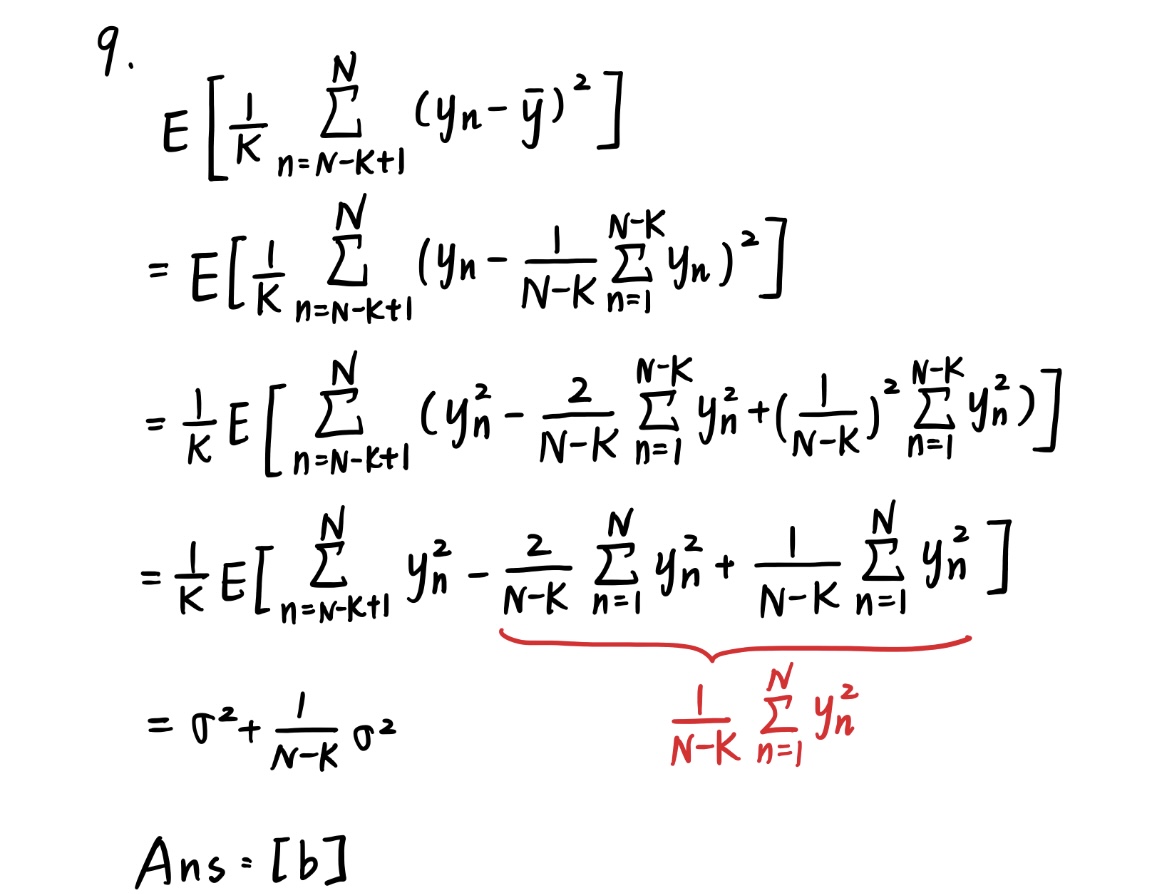 9.
E[1/K Σ_{n=N-K+1}^{N} (y_n - ȳ)²]
= E[1/K Σ_{n=N-K+1}^{N} (y_n - 1/(N-K) Σ_{n=1}^{N-K} y_n)²]
= 1/K E[Σ_{n=N-K+1}^{N} (y_n² - 2/(N-K) Σ_{n=1}^{N-K} y_n² + (1/(N-K))² Σ_{n=1}^{N-K} y_n²)]
= 1/K E[Σ_{n=N-K+1}^{N} y_n² - 2/(N-K) Σ_{n=1}^{N} y_n² + 1/(N-K) Σ_{n=1}^{N} y_n²]
1/(N-K) Σ_{n=1}^{N} y_n²
= σ² + 1/(N-K) σ²
Ans = [b]